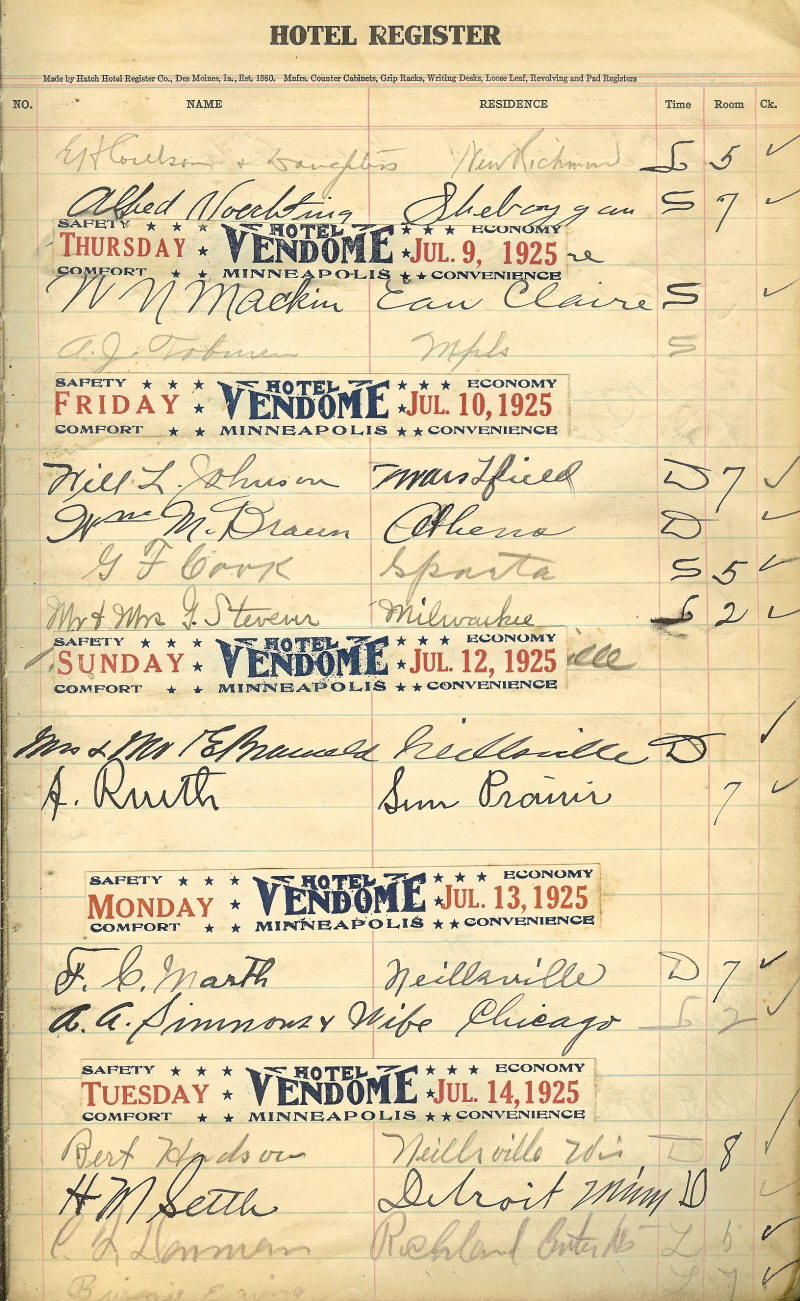 HOTEL REGISTER
Made by Hatch Hotel Register Co., Des Moines, Ia., Est. 1880. Mnfrs. Counter Cabinets, Grip Racks, Writing Desks, Loose Leaf, Revolving and Pad Registers
NO. NAME RESIDENCE Time Room Ck.
& Daughters New Richmond 5 ✓
Alfred Voechting Sheboygan S 7 ✓
SAFETY ★ ★ ★ HOTEL ★ ★ ★ ECONOMY
THURSDAY ★ VENDOME ★ JUL. 9, 1925 re
COMFORT ★ ★ MINNEAPOLIS ★ ★ CONVENIENCE
W N Mackin Eau Claire S ✓
A. J. Tobman Mpls S
SAFETY ★ ★ ★ HOTEL ★ ★ ★ ECONOMY
FRIDAY ★ VENDOME ★ JUL. 10, 1925
COMFORT ★ ★ MINNEAPOLIS ★ ★ CONVENIENCE
Will L. Johnson Marshfield D 7 ✓
Wm M. Braun Athens D ✓
G F Cook Sparta S 5 ✓
Mr & Mrs G. Stevens Milwaukee 2 ✓
SAFETY ★ ★ ★ HOTEL ★ ★ ★ ECONOMY
SUNDAY ★ VENDOME ★ JUL. 12, 1925 ille
COMFORT ★ ★ MINNEAPOLIS ★ ★ CONVENIENCE
Mrs & Mr Neillsville D ✓
A. Ruth Sun Prairie 7 ✓
SAFETY ★ ★ ★ HOTEL ★ ★ ★ ECONOMY
MONDAY ★ VENDOME ★ JUL. 13, 1925
COMFORT ★ ★ MINNEAPOLIS ★ ★ CONVENIENCE
F. C. Marth Neillsville D 7 ✓
A. A. Simmons & Wife Chicago 2 ✓
SAFETY ★ ★ ★ HOTEL ★ ★ ★ ECONOMY
TUESDAY ★ VENDOME ★ JUL. 14, 1925
COMFORT ★ ★ MINNEAPOLIS ★ ★ CONVENIENCE
Bert Hudson Neillsville Wis D 8 ✓
H M Settle Detroit Minn D ✓
C Denman Richland Center Wis L 5 ✓
L 7 ✓